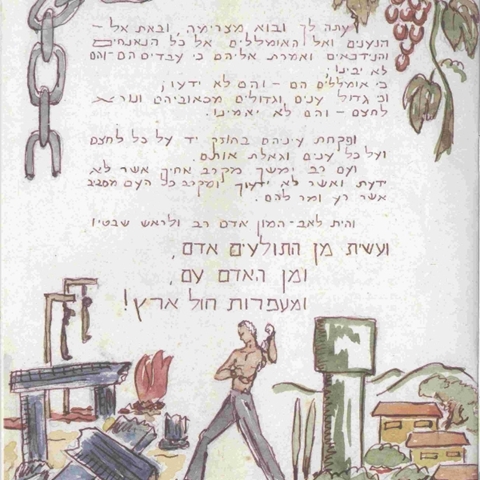 עתה לך ובוא מצרימה, ובאת אל –
הנענים ואל האומללים אל כל הנאנחים
והנידכאים ואמרת אליהם כי עבדים הם – והם
לא יבינו;
כי אומללים הם – והם לא ידעו;
וכי גדול ענים וגדולים מכאוביהם ונורא
לחצם – והם לא יאמינו.
ופקחת עיניהם בחוזק יד על כל לחצם
ועל כל ענים וגאלת אותם.
ועם רב ימשך מקרב אחיך אשר לא
ידעת ואשר לא ידעוך ומקרב כל העם מסביב
אשר רע ומר להם.
והית לאב-המון אדם רב ולראש שבטיו
ועשית מן התולעים אדם,
ומן האדם עם,
ומעפרות חול ארץ!